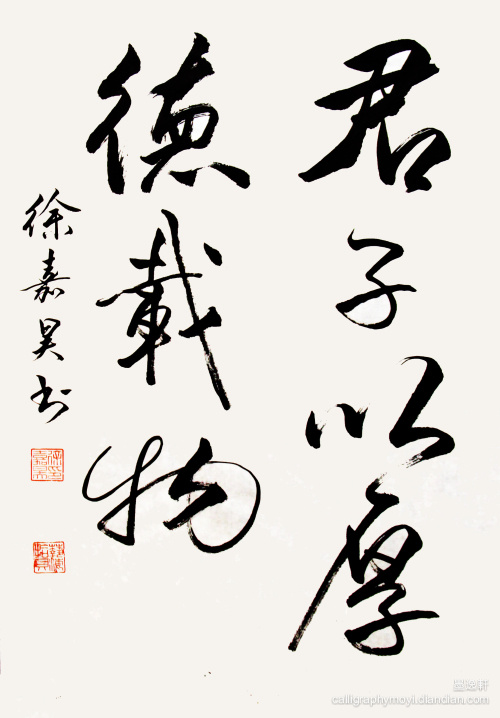 君子以厚
德載物
徐嘉昊书
墨逸轩
calligraphymoyi.diandian.com